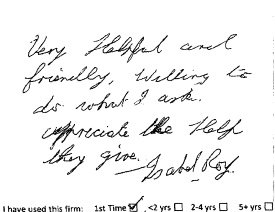 Very Helpful and
friendly, Willing to
do what I ask.
appreciate the Help
they give. Isabel Roy.
I have used this firm: 1st Time ☑ <2 yrs ☐ 2-4 yrs ☐ 5+ yrs ☐